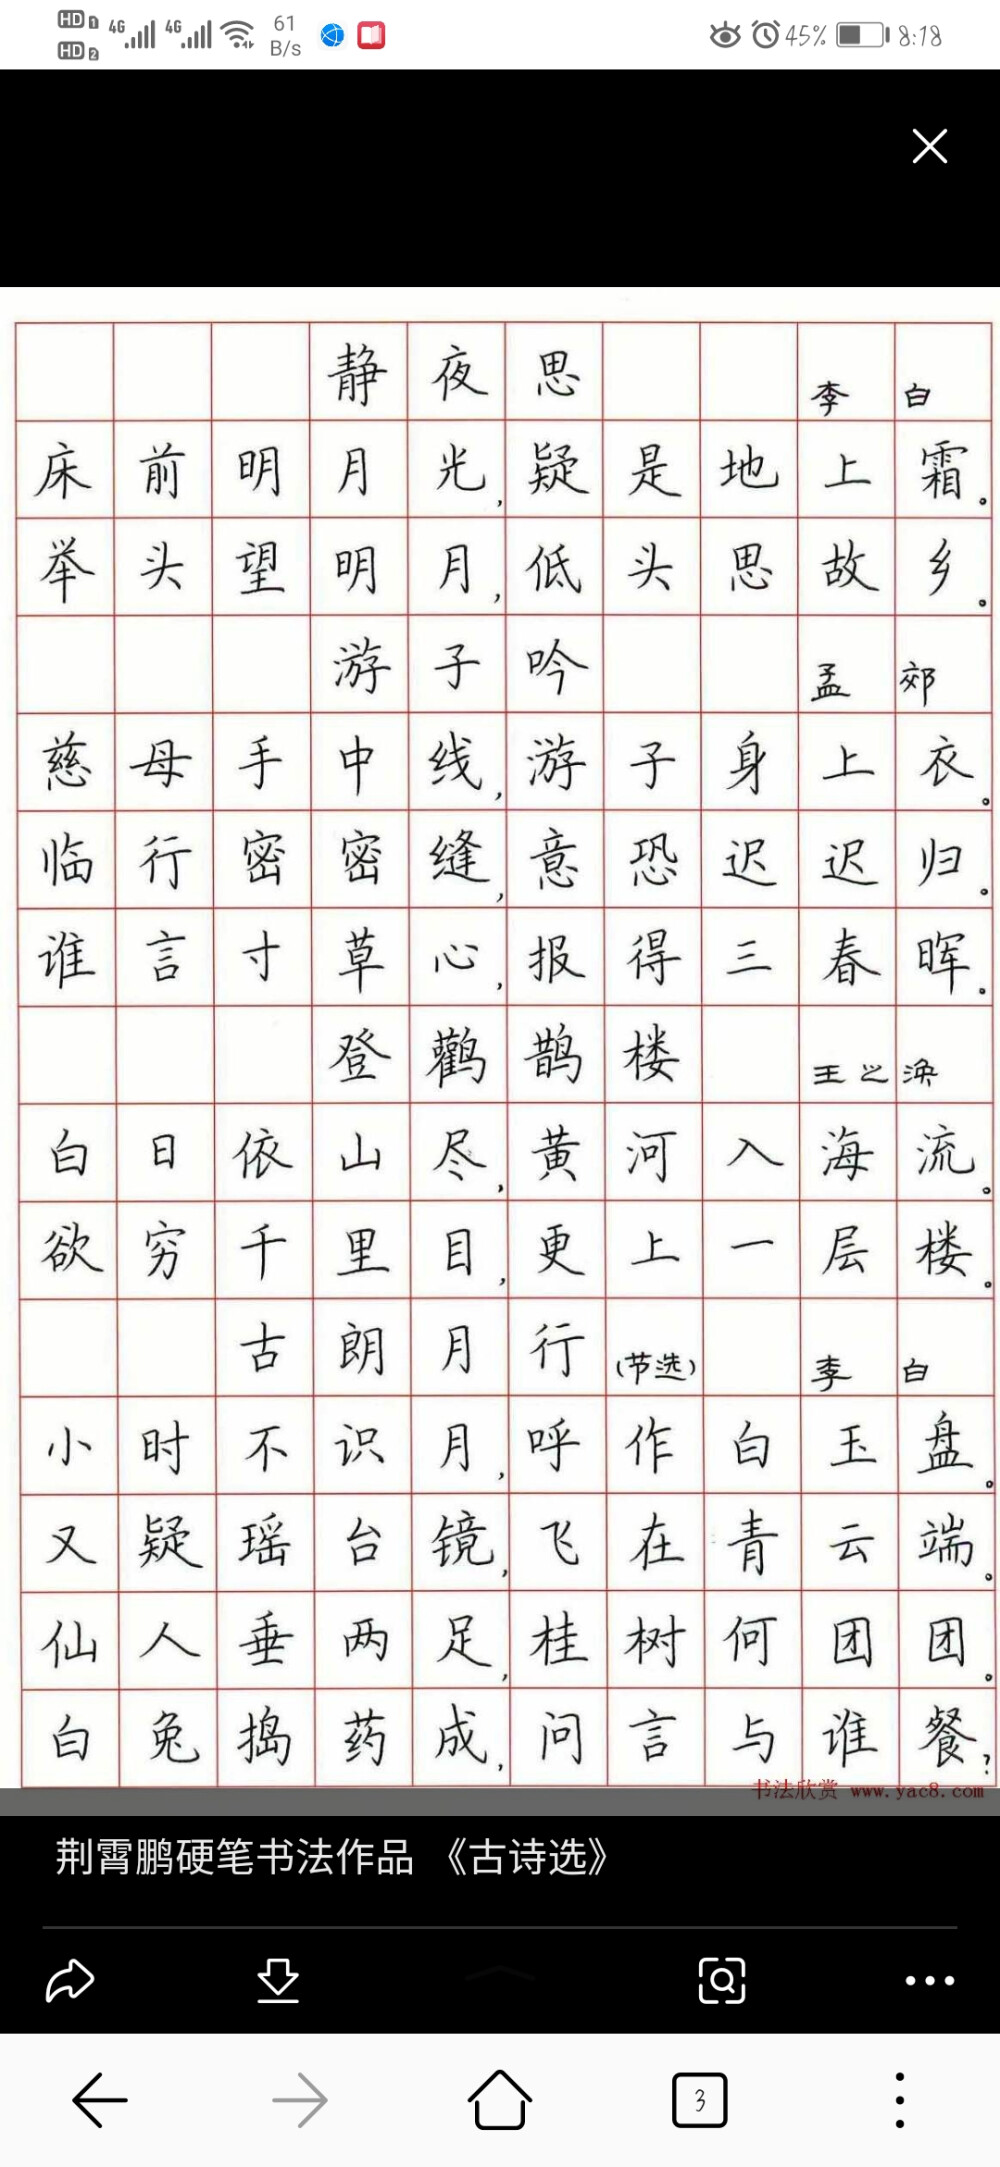 HD 1 4G 4G 61 45% 8:18
HD 2 B/s
静夜思 李白
床前明月光,疑是地上霜。
举头望明月,低头思故乡。
游子吟 孟郊
慈母手中线,游子身上衣。
临行密密缝,意恐迟迟归。
谁言寸草心,报得三春晖。
登鹳鹊楼 王之涣
白日依山尽,黄河入海流。
欲穷千里目,更上一层楼。
古朗月行(节选) 李白
小时不识月,呼作白玉盘。
又疑瑶台镜,飞在青云端。
仙人垂两足,桂树何团团。
白兔捣药成,问言与谁餐?
书法欣赏 www.yac8.com
荆霄鹏硬笔书法作品 《古诗选》
3